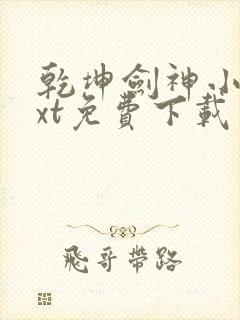 乾坤劍神小
xt免費下載
飛哥帶路